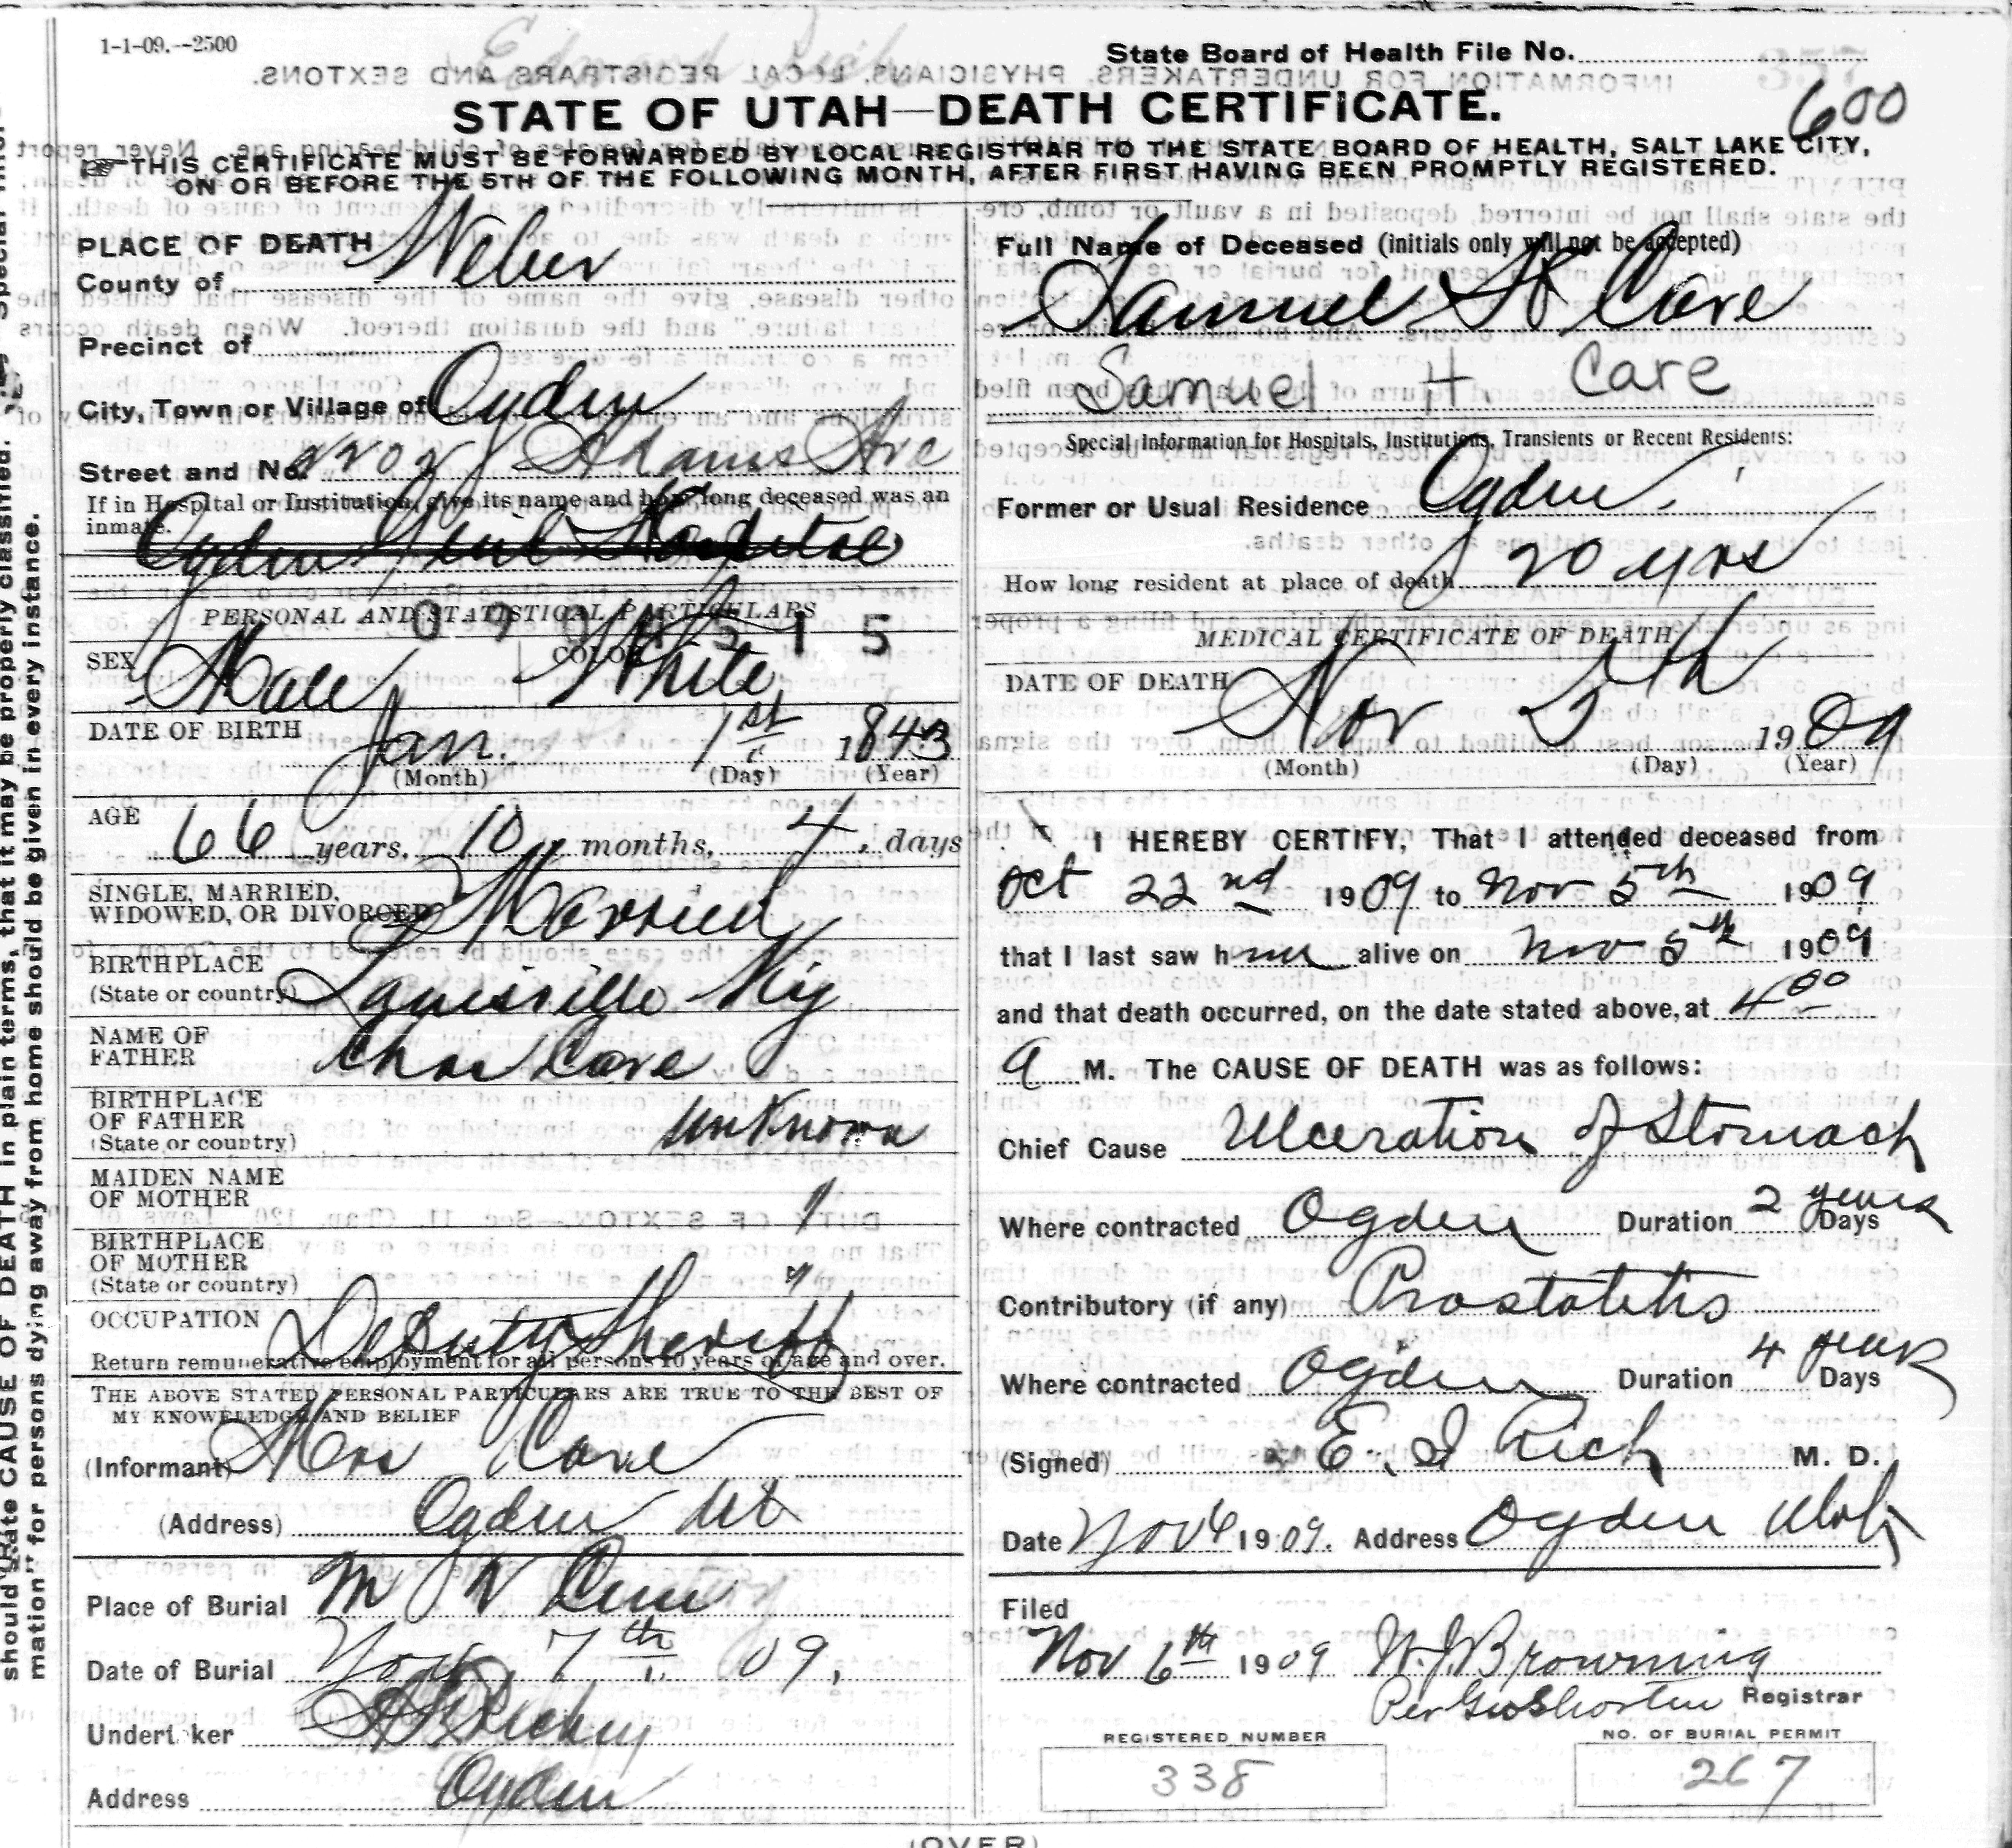 1-1-09.--2500
State Board of Health File No.
600
STATE OF UTAH—DEATH CERTIFICATE.
THIS CERTIFICATE MUST BE FORWARDED BY LOCAL REGISTRAR TO THE STATE BOARD OF HEALTH, SALT LAKE CITY,
ON OR BEFORE THE 5TH OF THE FOLLOWING MONTH, AFTER FIRST HAVING BEEN PROMPTLY REGISTERED.
PLACE OF DEATH
County of Weber
Precinct of
City, Town or Village of Ogden
Street and No. Adams Ave
If in Hospital or Institution, give its name and how long deceased was an
inmate.
Ogden Genl Hospital
PERSONAL AND STATISTICAL PARTICULARS
SEX Male COLOR White
DATE OF BIRTH Jan. 1st 1843
(Month) (Day) (Year)
AGE
66 years, 10 months, 4 days
SINGLE, MARRIED,
WIDOWED, OR DIVORCED Married
BIRTHPLACE
(State or country) Louisville Ky
NAME OF
FATHER Chas Care
BIRTHPLACE
OF FATHER
(State or country) unknown
MAIDEN NAME
OF MOTHER "
BIRTHPLACE
OF MOTHER
(State or country) "
OCCUPATION Deputy Sheriff
Return remunerative employment for all persons 10 years of age and over.
THE ABOVE STATED PERSONAL PARTICULARS ARE TRUE TO THE BEST OF
MY KNOWLEDGE AND BELIEF
(Informant) Mrs Care
(Address) Ogden Ut
Place of Burial
Date of Burial Nov. 7th 09.
Undert ker
Address Ogden
Full Name of Deceased (initials only will not be accepted)
Samuel H Care
Samuel H. Care
Special Information for Hospitals, Institutions, Transients or Recent Residents:
Former or Usual Residence Ogden
How long resident at place of death 20 yrs
MEDICAL CERTIFICATE OF DEATH
DATE OF DEATH Nov 5th 1909
(Month) (Day) (Year)
I HEREBY CERTIFY, That I attended deceased from
Oct 22nd 1909 to Nov 5th 1909
that I last saw him alive on Nov 5th 1909
and that death occurred, on the date stated above, at 4 00
a M. The CAUSE OF DEATH was as follows:
Chief Cause Ulceration of Stomach
Where contracted Ogden Duration 2 years Days
Contributory (if any) Prostatitis
Where contracted Ogden Duration 4 years Days
(Signed) E. I Rich M. D.
Date Nov 6 1909. Address Ogden Utah
Filed
Nov 6th 1909 W. J. Browning
Per Geo Shorten Registrar
REGISTERED NUMBER NO. OF BURIAL PERMIT
338 267
(OVER)
should state CAUSE OF DEATH in plain terms, that it may be properly classified.
mation" for persons dying away from home should be given in every instance.